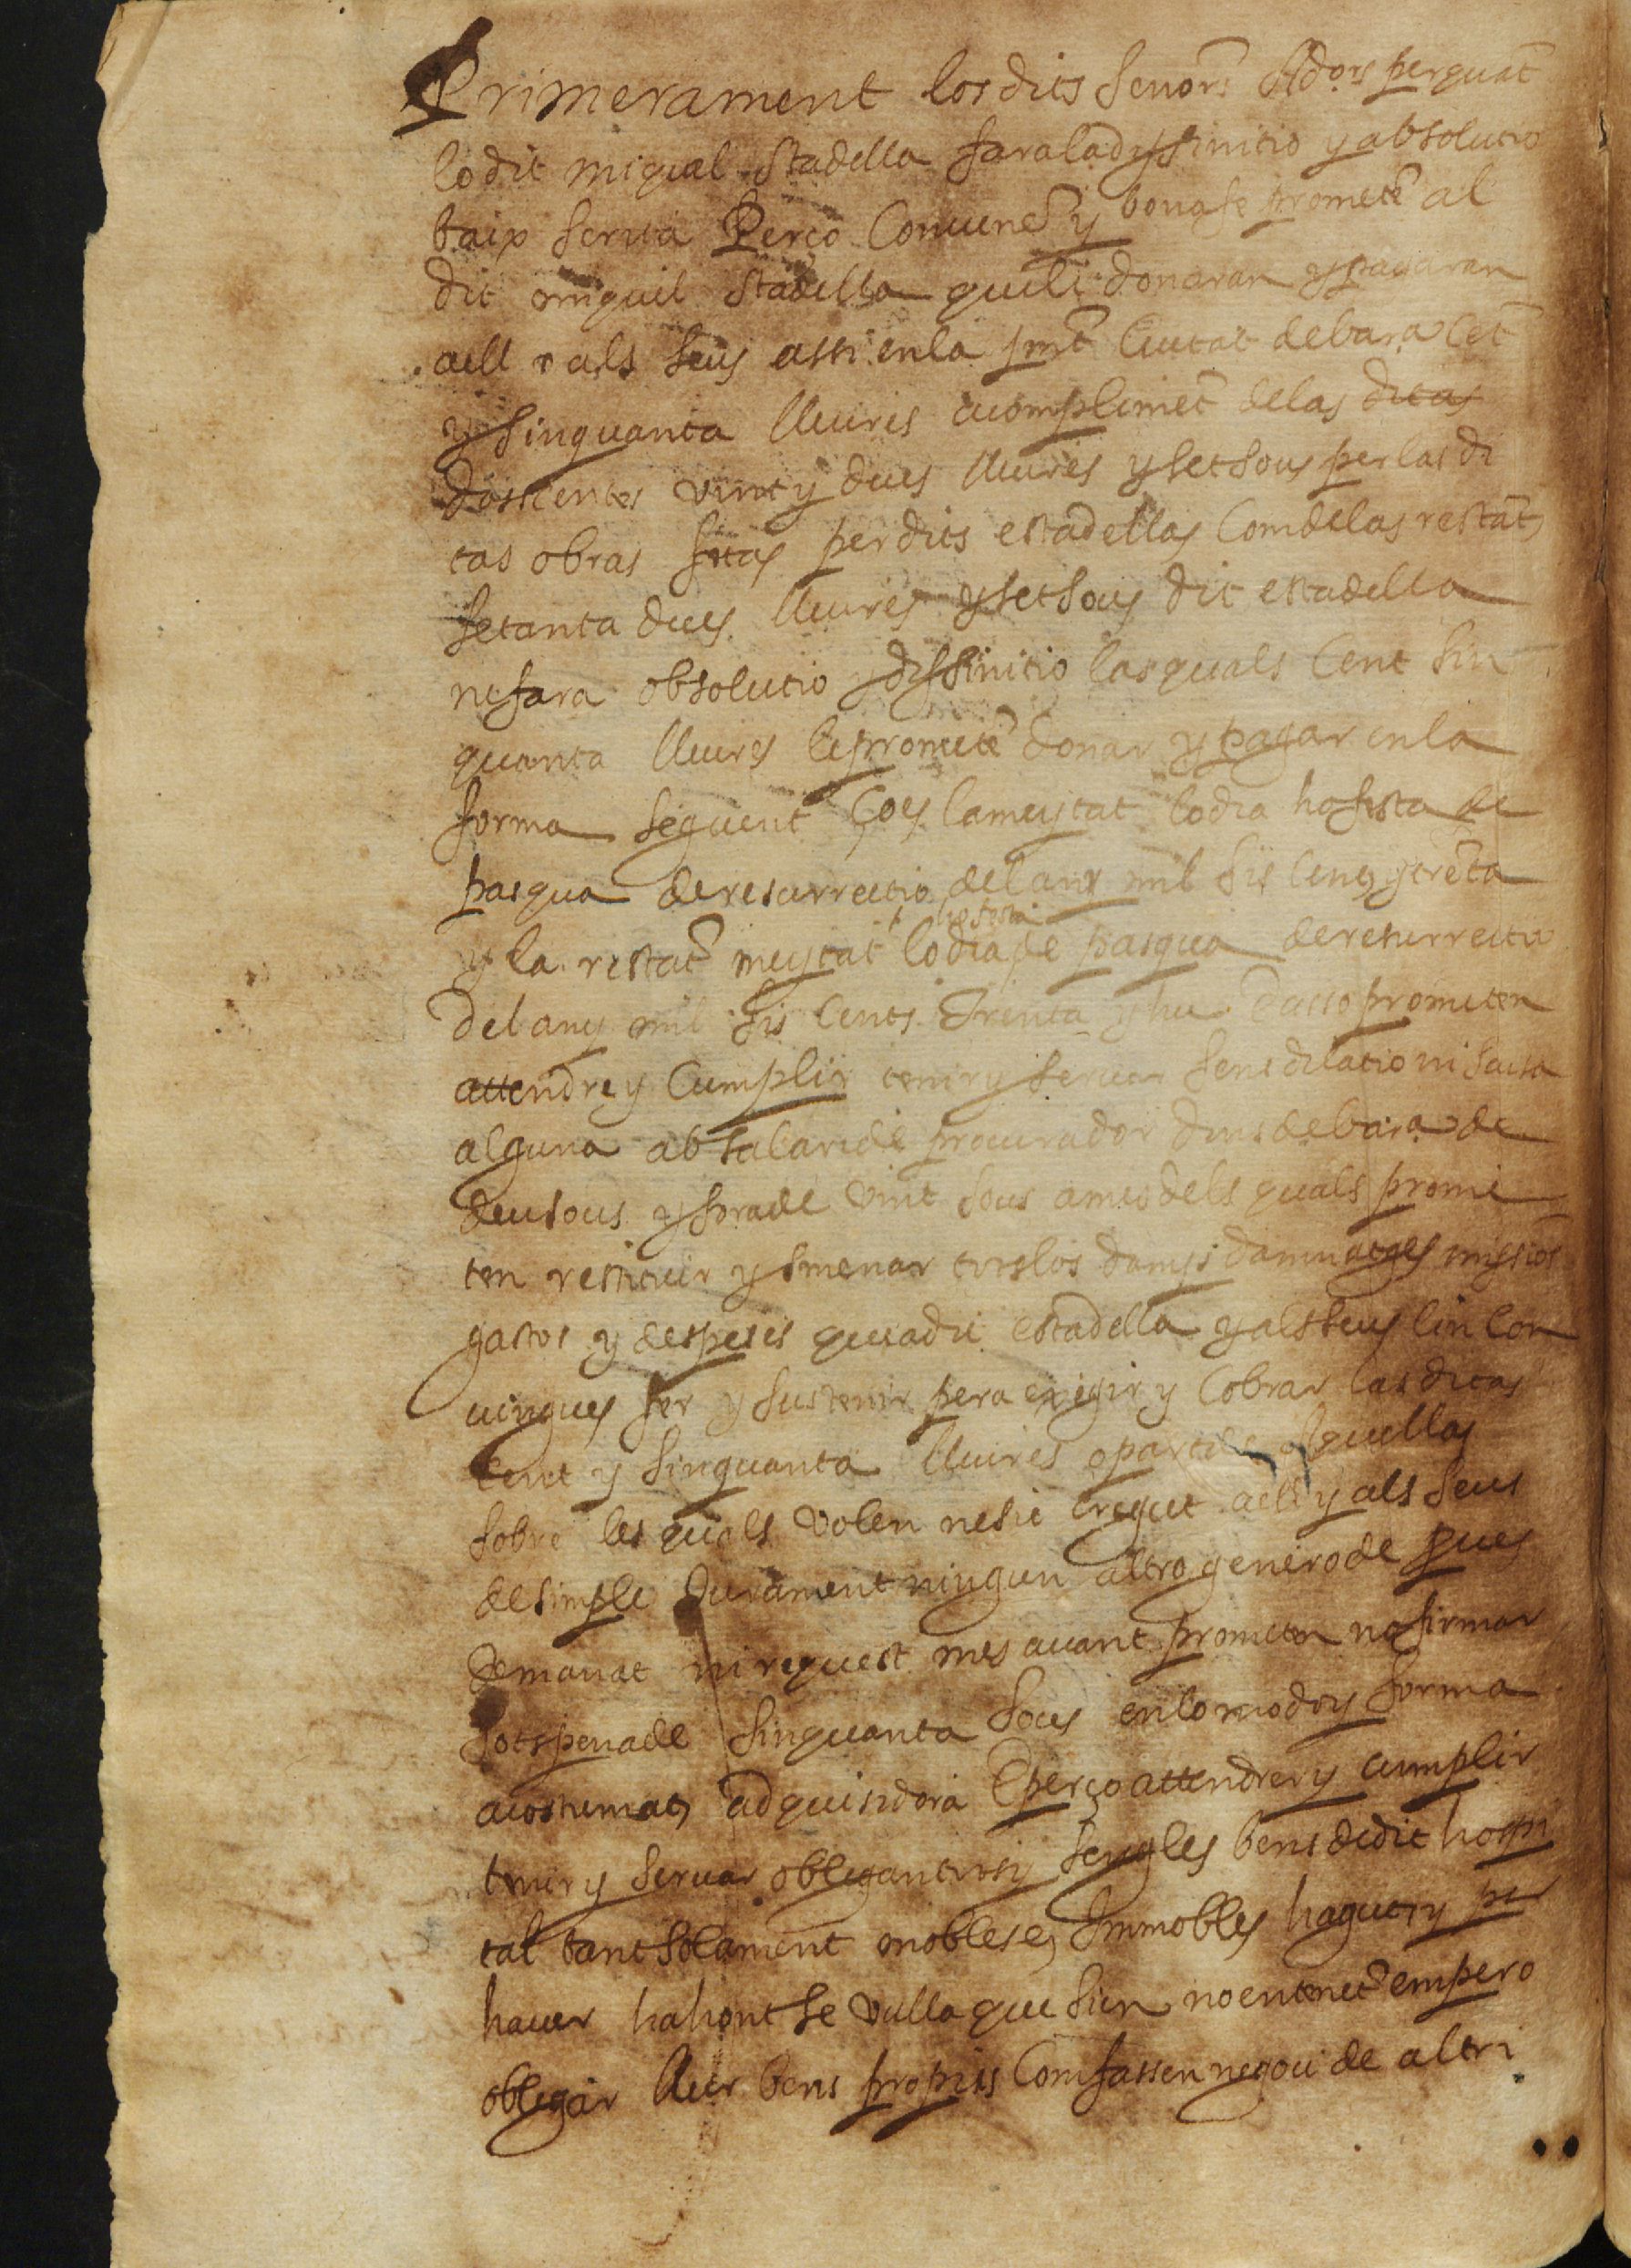 Primerament los dits senors Adors perquāt
lo dit miquel Stadella fara la dyffinitio y absolutio
baix scriva Perço Convenē y bona fe prometē al
dit miquel Stadella queli donaran y pagaran
aell o als seus assi enla pnt Ciutat de bara Cēt
y sinquanta lliures acomplimēt delas ditas
doscentes vint y dues lliures y set sous per las di
tas obras fetas per dits estadellas Com delas restāts
setanta dues lliures y set sous dit estadella
ne fara absolutio y dyffinitio las quals Cent sin
quanta lliures li prometē donar y pagar enla
forma seguent Ço es la meytat lo dia ho festa de
pasqua de resurrectio del any mil sis Cents y trēta
y la restāt meytat lo dia ho festa de pasqua de resurrectio
del any mil sis Cents Trenta y hu E asso prometen
attendrer y Cumplir tenir y servar sens dilatio ni scusa
alguna ab salari de procurador dins de bara de
deu sous y fora de vint sous ames dels quals prome
ten restituir y smenar tots los danys damnatges missiōs
gastos y despeses que a dit estadella y als seus lin Con
vingues fer y sustenir pera exigir y Cobrar las ditas
Cent y sinquanta lliures o part de Aquellas
sobre les quals volen nesie Cregut aell y als seus
de simple Jurament ningun altro genero de pues
demanat ni request mes avant prometen no firmar
sots pena de sinquanta sous enlo modo y forma
acostumats adquisidora E perço attendrer y cumplir
tenir y servar obligan tots y sengles bens de dit hospi
tal tant solament mobles e Immobles haguts y per
haver hahont se vulla que sien no entenēt empero
obligar llur bens propris Com fassen negoci de altri